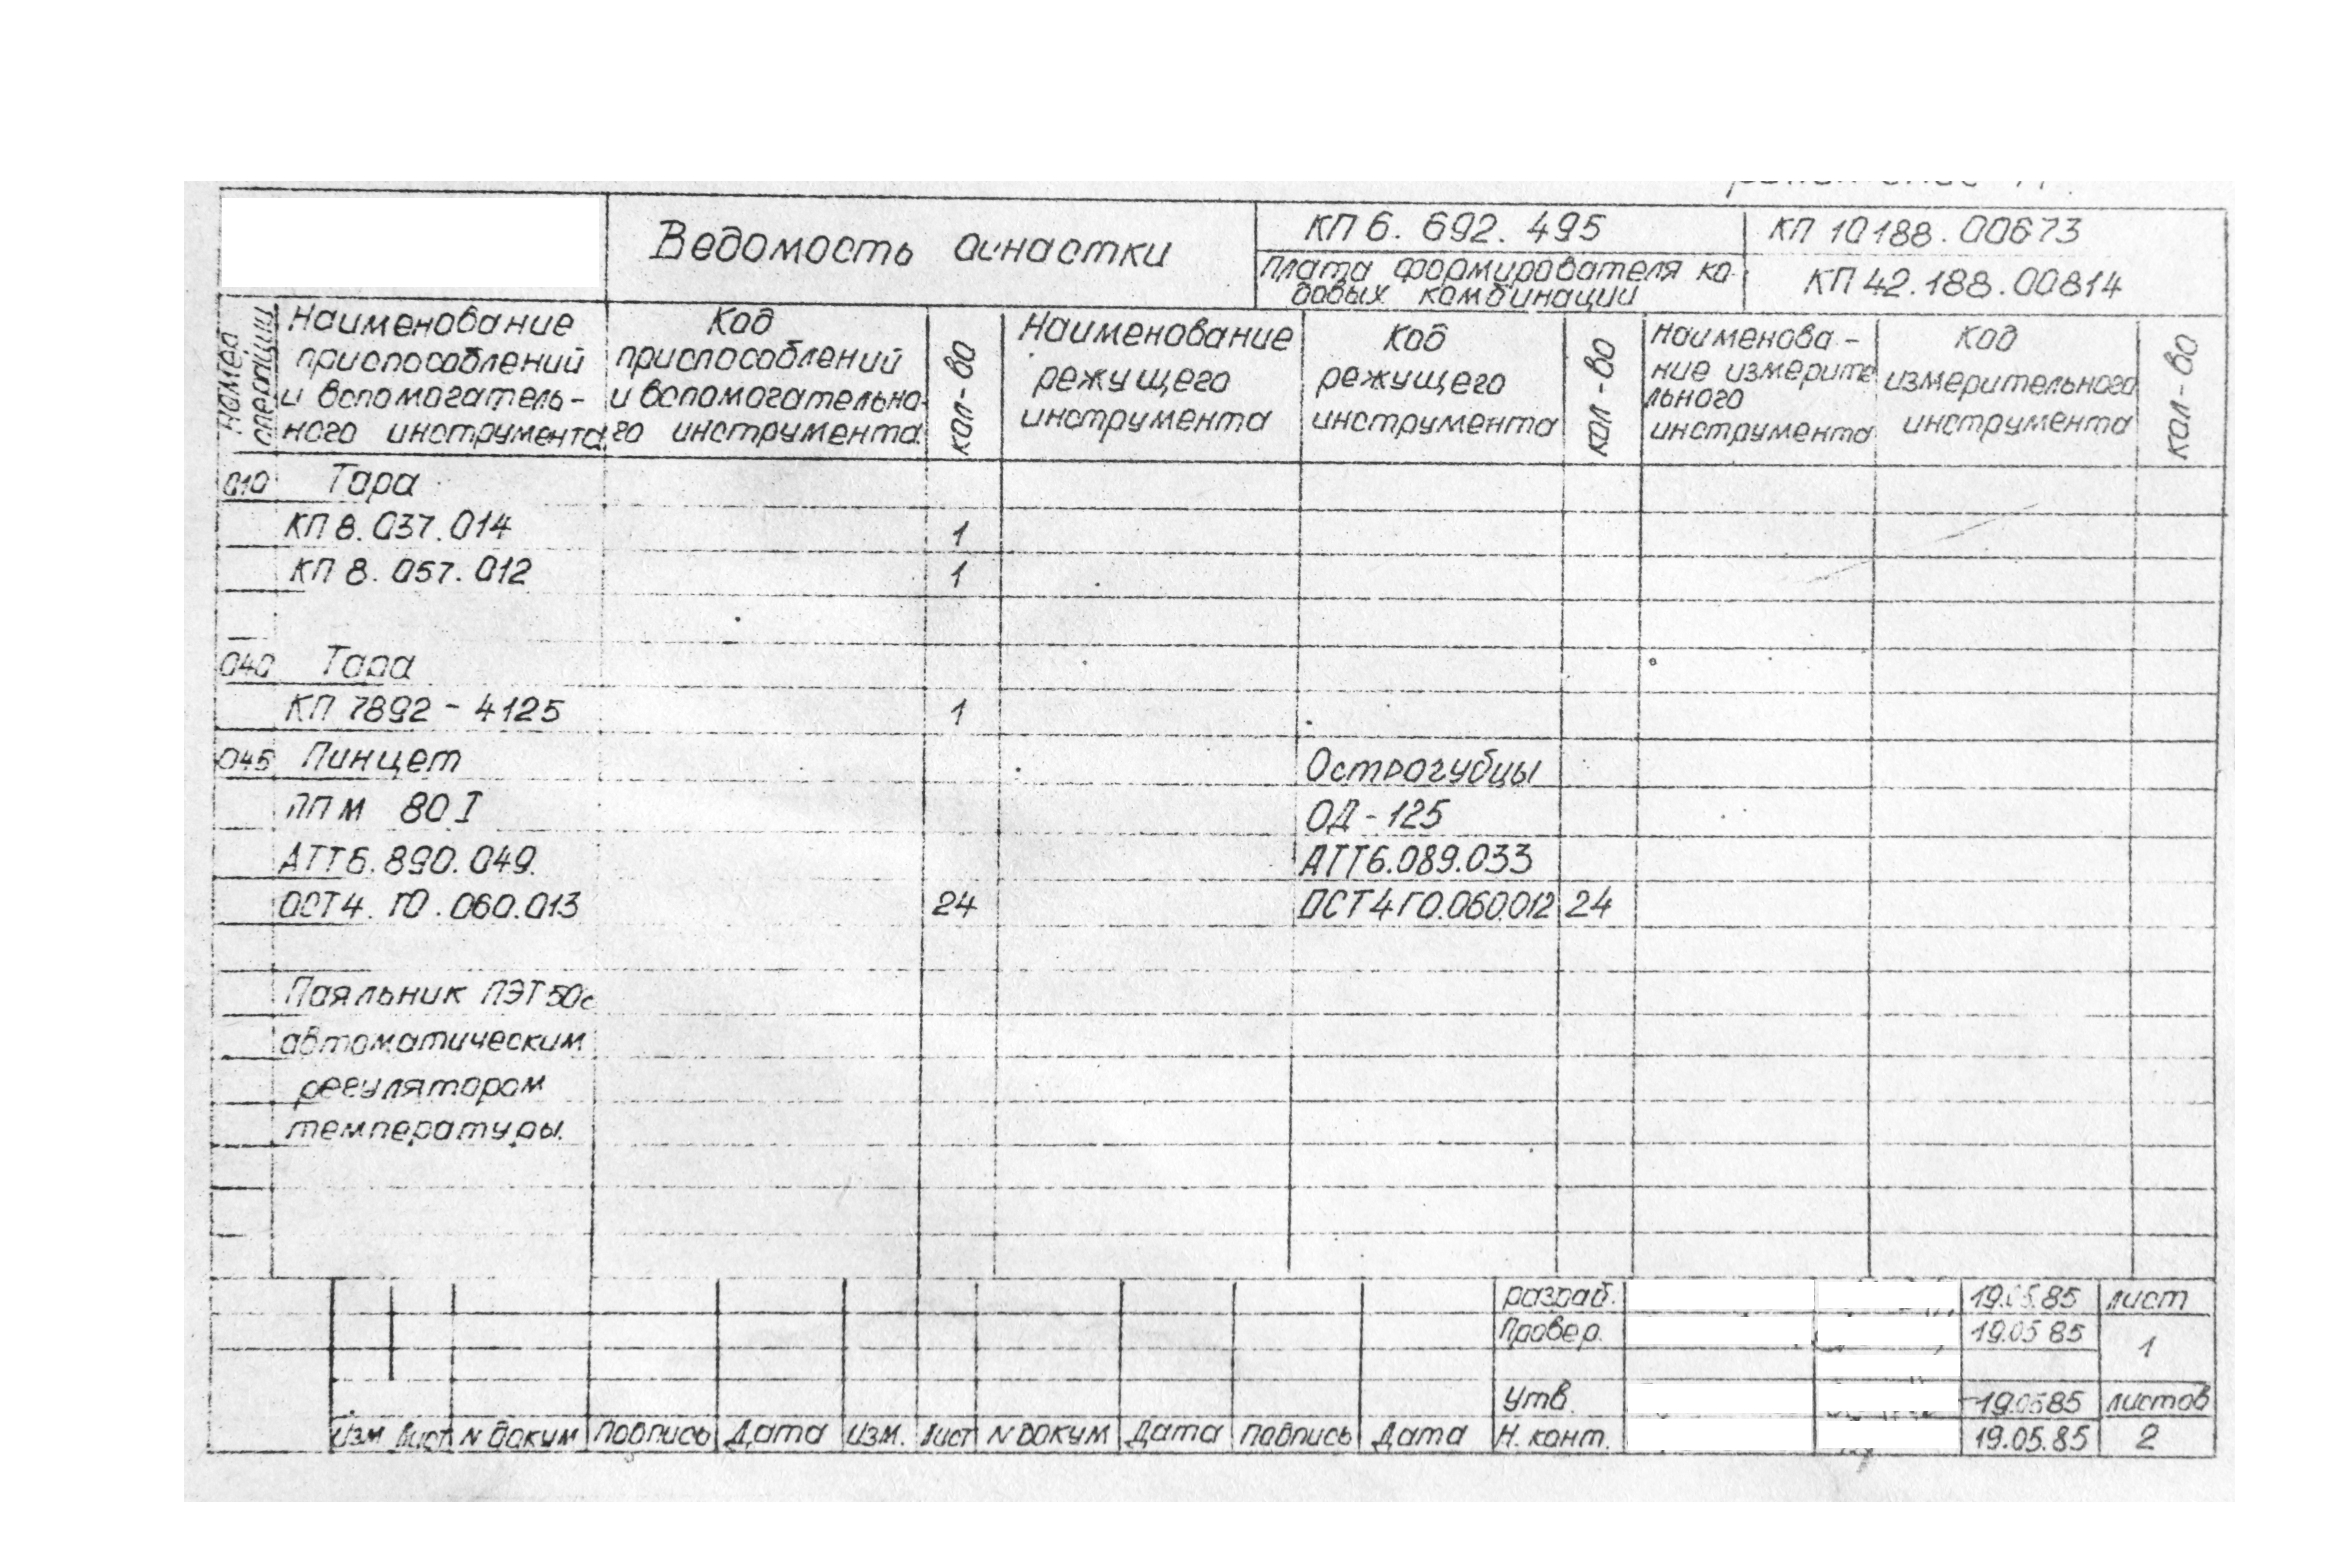 Ведомость оснастки
КП 6. 692. 495
КП 10188.00673
плата формирователя ко-
довых комбинации
КП 42.188.00814
Номер операции
Наименование
приспособлений
и вспомогатель-
ного инструмента
Код
приспособлений
и вспомогательно-
го инструмента
кол-во
Наименование
режущего
инструмента
Код
режущего
инструмента
кол-во
Наименова-
ние измерите
льного
инструмента
Код
измерительного
инструмента
кол-во
010 Тара
КП 8.037.014 1
КП 8.057.012 1
040 Тара
КП 7892-4125 1
045 Пинцет Острогубцы
ППМ 80 I ОД-125
АТТ6.890.049. АТТ6.089.033
ОСТ4.ГО.060.013 24 ОСТ4ГО.060.012 24
Паяльник ПЭТ50с
автоматическим
регулятором
температуры.
разраб. 19.05.85 лист
Провер. 19.05 85 1
Утв. 19.0585 листов
Изм Лист N докум Подпись Дата Изм. Лист N докум Дата подпись Дата Н. конт. 19.05.85 2